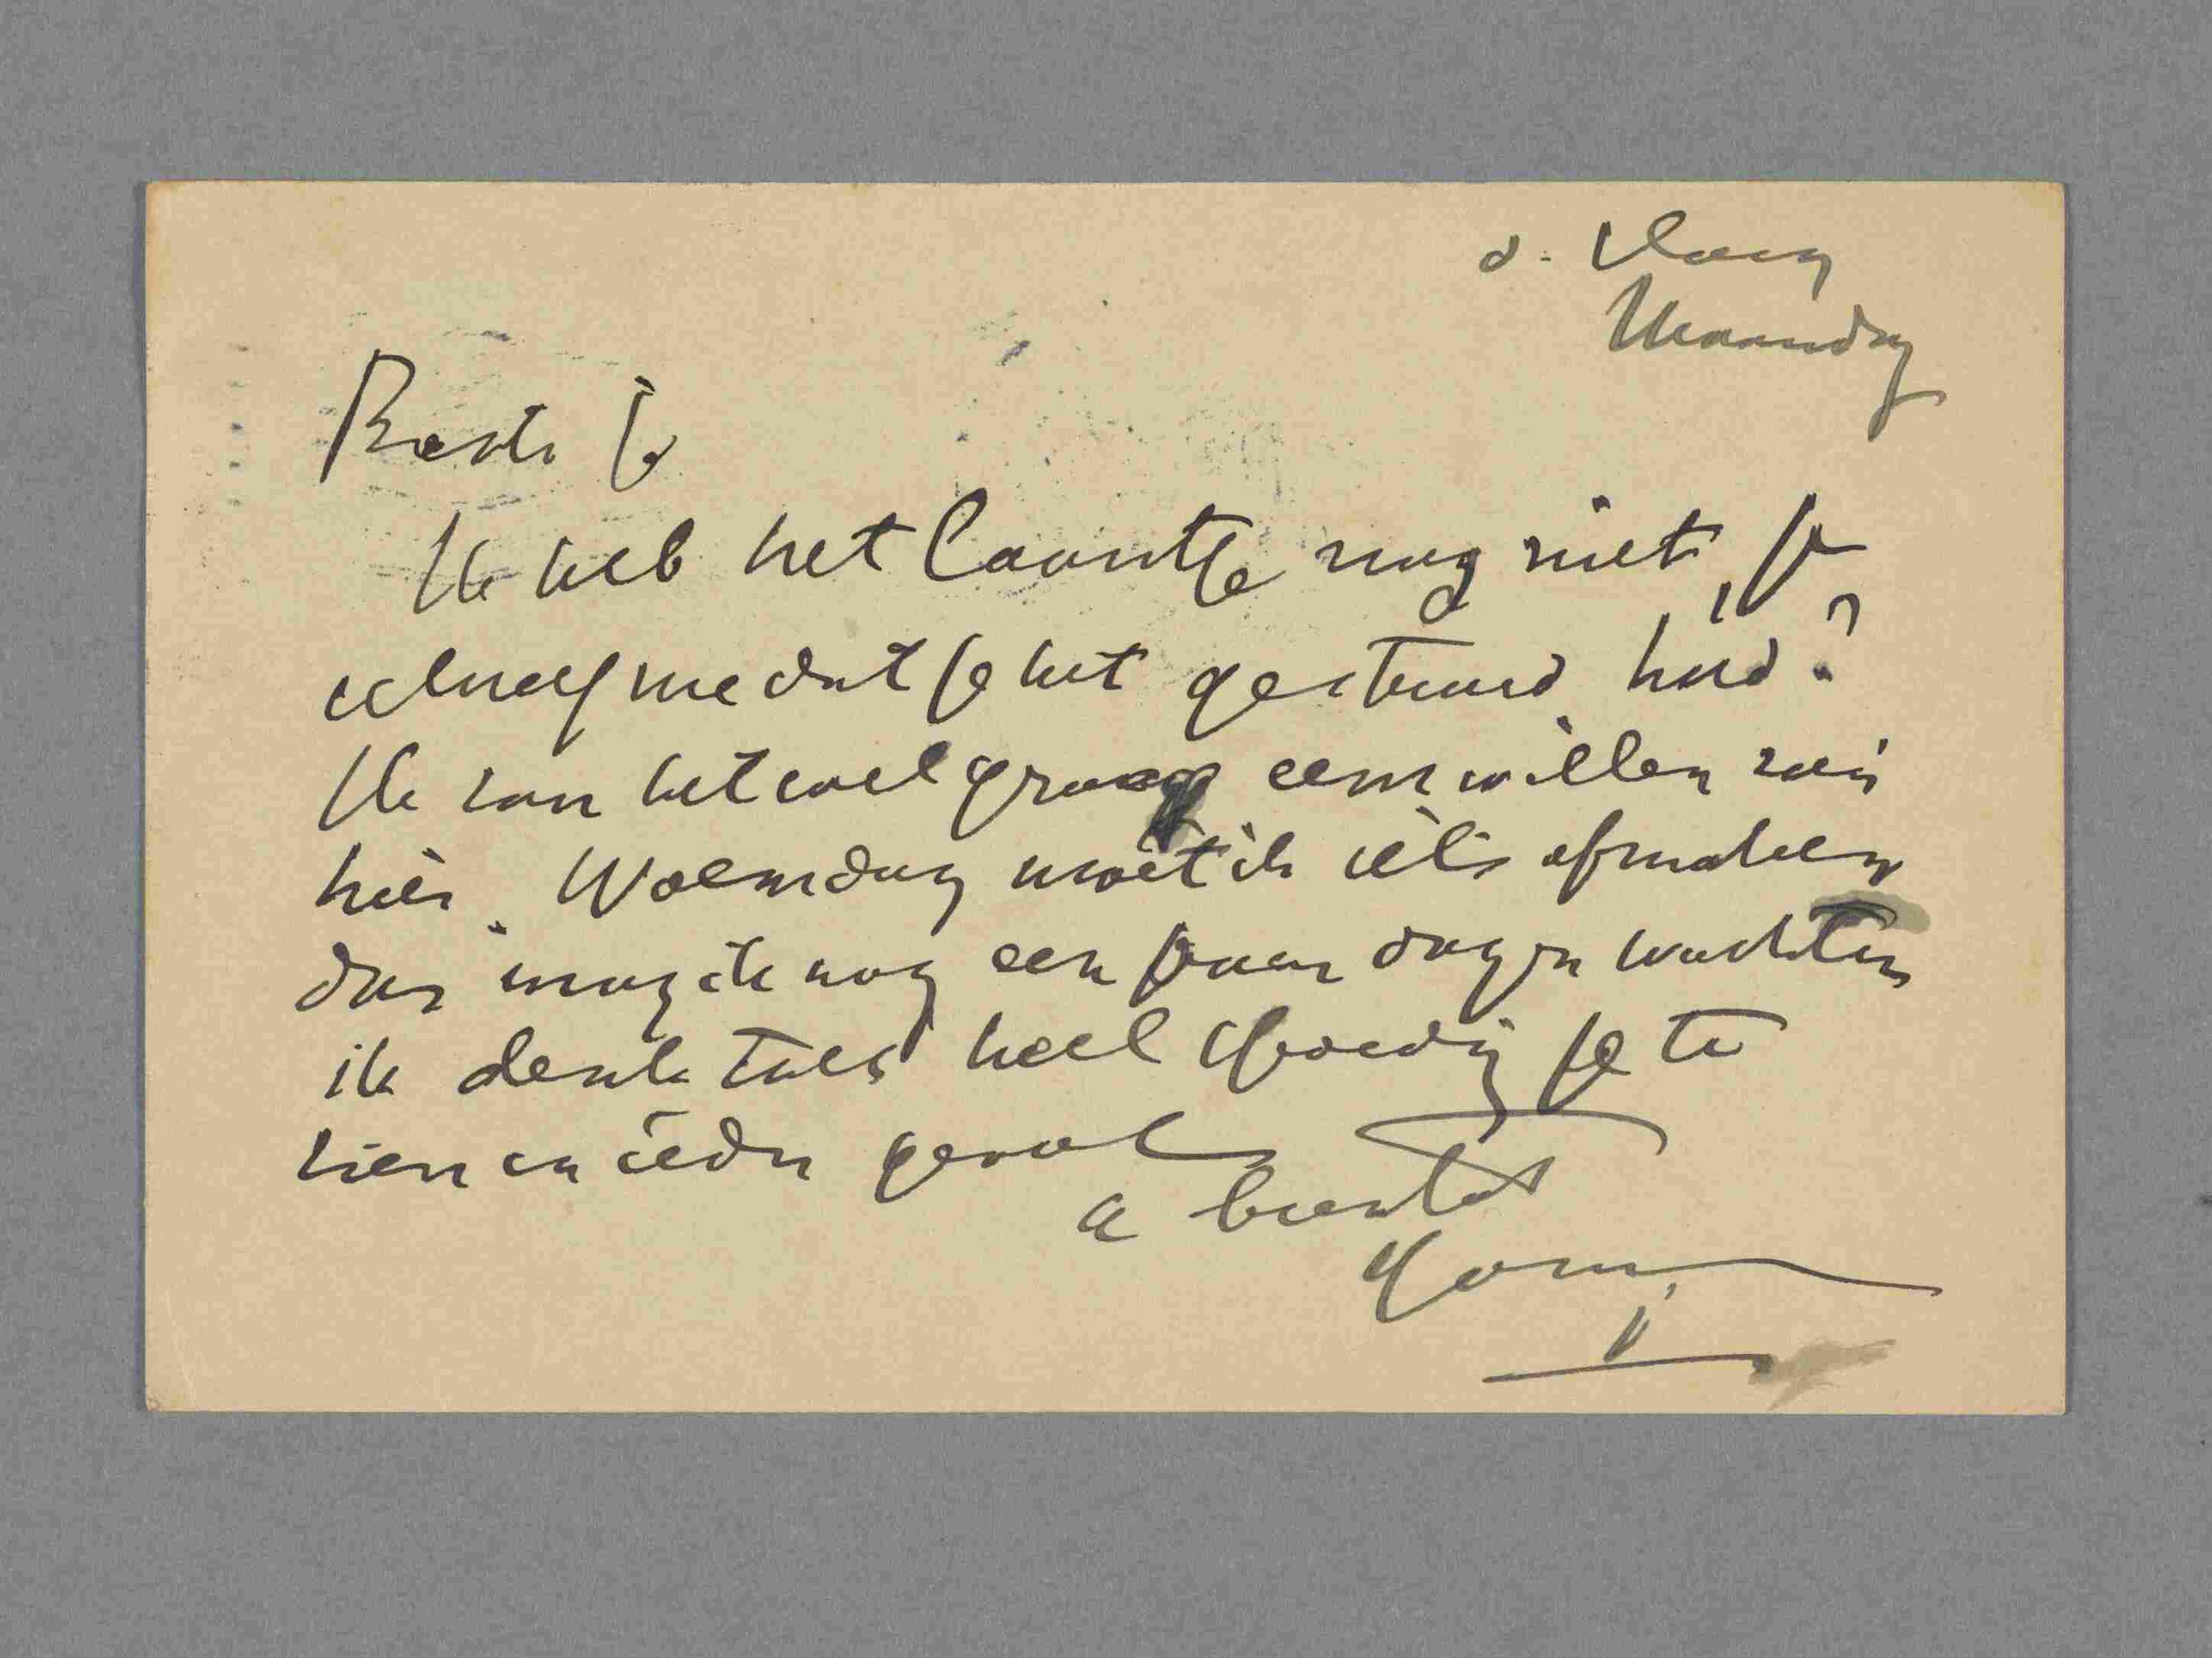 d. Haag
Maandag
Beste Jo
Ik heb het laantje nog niet, je
schreef me dat je het gestuurd had?
Ik zou het wel graag eens willen zien
hier. Woensdag moet ik iets afmaken
dus mag ik nog een paar dagen wachten
ik denk toch heel spoedig je te
zien in ieder geval
a bientot